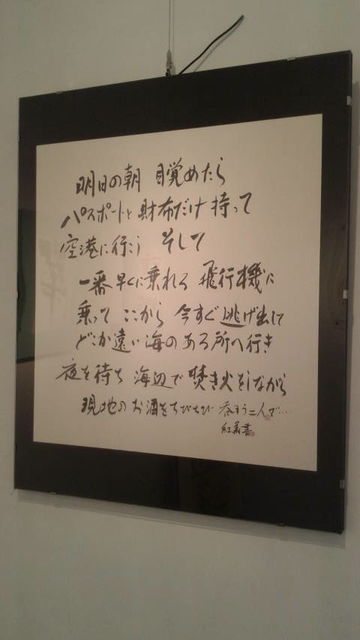 明日の朝 目覚めたら
パスポートと財布だけ持って
空港に行こう そして
一番早くに乗れる 飛行機に
乗って ここから 今すぐ逃げ出して
どこか遠い海のある所へ行き
夜を待ち 海辺で焚き火をしながら
現地のお酒をちびちび 呑もう二人で…